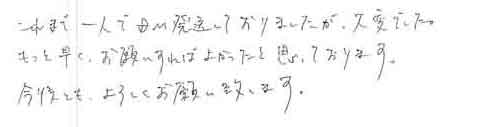 これまで一人で 発送しておりましたが、大変でした。
もっと早く、お願いすればよかったと思っております。
今後とも、よろしくお願い致します。